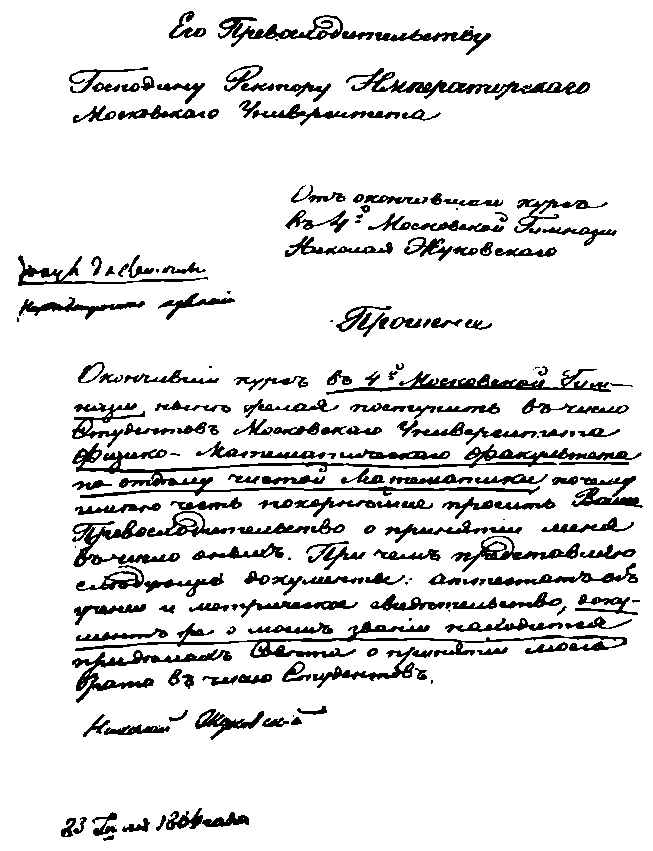 Его Превосходительству
Господину Ректору Императорскаго
Московскаго Университета
Отъ окончившаго курсъ
въ 4й Московской Гимназии
Николая Жуковскаго
Прошение
Окончивши курсъ въ 4й Московской Гим-
назии, ныне желая поступить въ число
Студентовъ Московскаго Университета
Физико-Математическаго Факультета
по отделу чистой Математики, почему
имею честь покорнейше просить Ваше
Превосходительство о принятии меня
въ число оныхъ. При чемъ представляю
следующие документы: аттестатъ объ
учении и метрическое свидетельство, доку-
ментъ же о моемъ звании находится
при делахъ Совета о принятии моего
брата въ число Студентовъ.
Николай Жуковский
23 Июля 1864 года